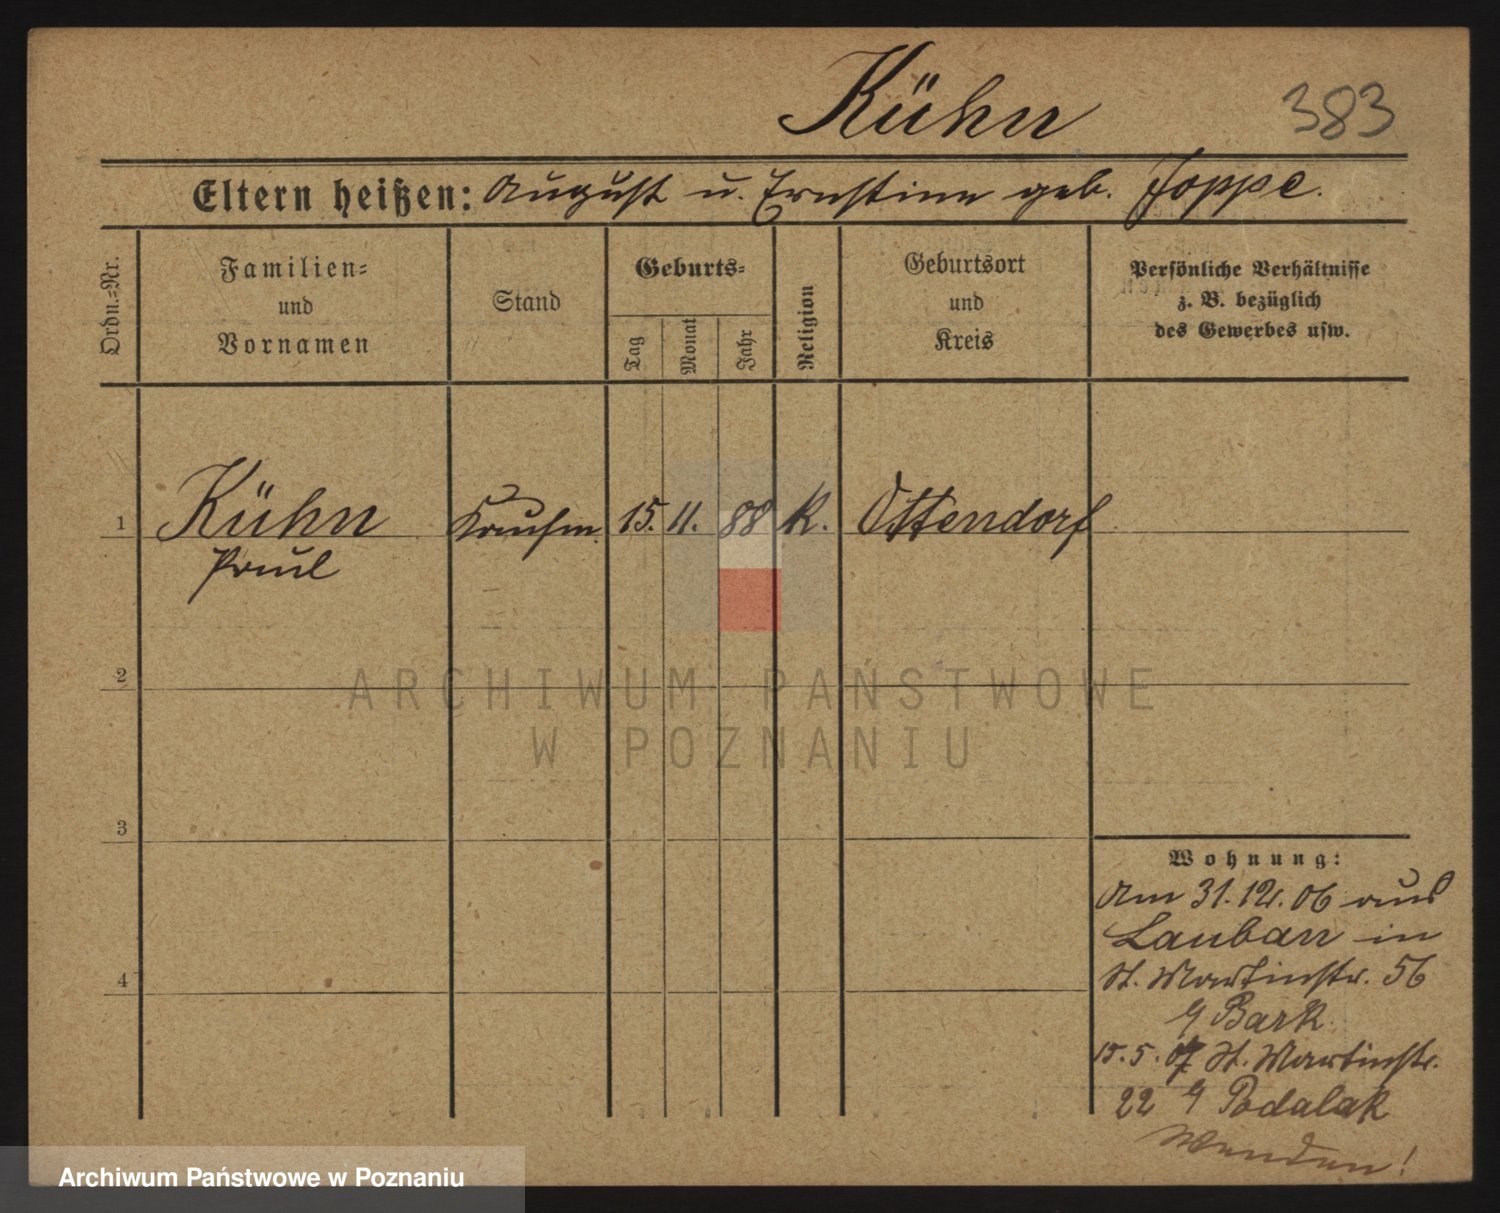 Kühn 383
Eltern heißen: August u. Ernstine geb. Joppe.
Ordn.=Nr.
Familien=
und
Vornamen
Stand
Geburts=
Tag
Monat
Jahr
Religion
Geburtsort
und
Kreis
Persönliche Verhältnisse
z. B. bezüglich
des Gewerbes usw.
1 Kühn Kaufm. 15. 11. 88 k. Ottendorf
Paul
2
ARCHIWUM PAŃSTWOWE
W POZNANIU
3
Wohnung:
Am 31.12.06 aus
Lauban in
4
St. Martinstr. 56
Bark
15.5.07 St. Martinstr.
22 Podalak
Wenden!
Archiwum Państwowe w Poznaniu